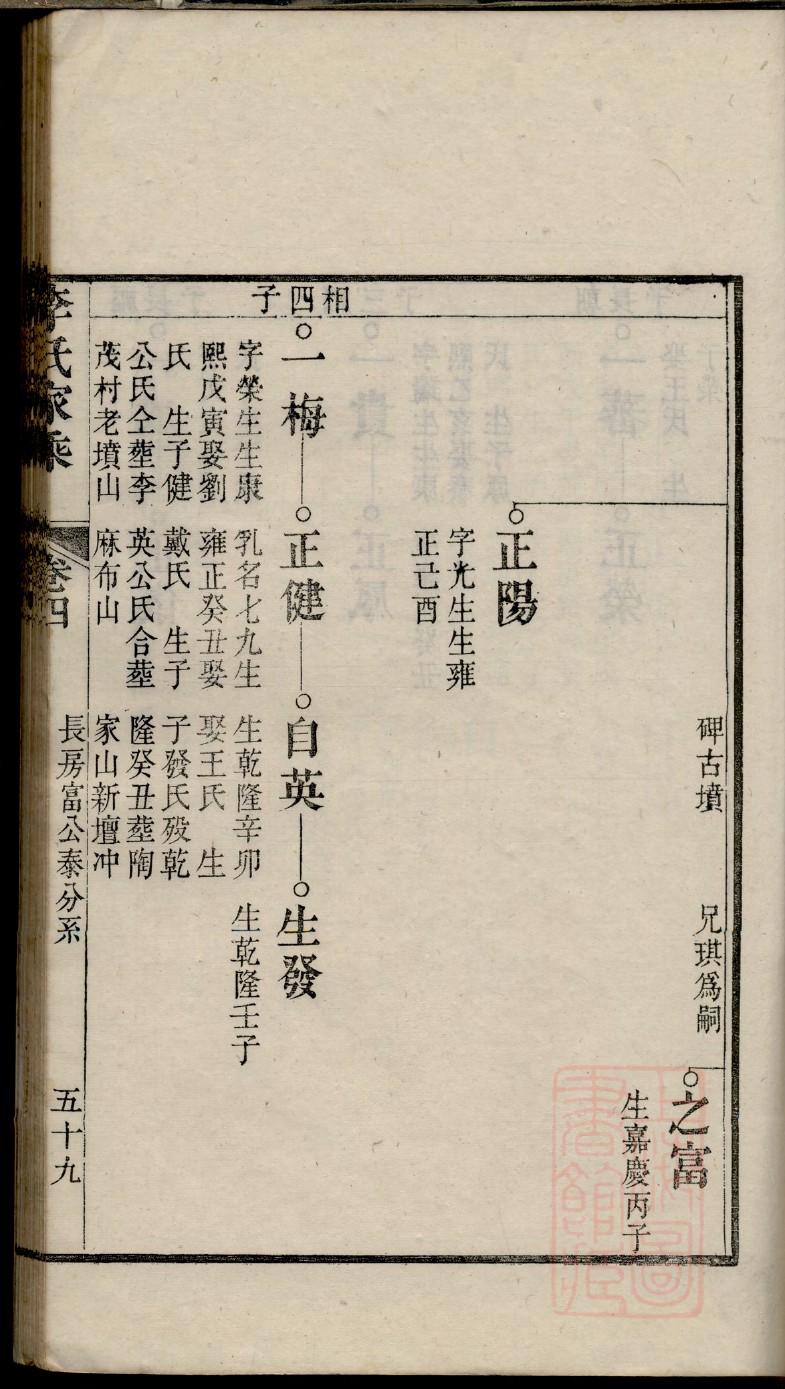 碑古墳
兄琪爲嗣
之富
生嘉慶丙子
正陽
字光生生雍
正己酉
相四子
一梅
字榮生生康
熙戊寅娶劉
氏 生子健
公氏仝塟李
茂村老墳山
正健
乳名七九生
雍正癸丑娶
戴氏 生子
英公氏合塟
麻布山
自英
生乾隆辛卯
娶王氏 生
子發氏殁乾
隆癸丑塟陶
家山新壇冲
生發
生乾隆壬子
長房富公泰分系
五十九
李氏家乘
卷四